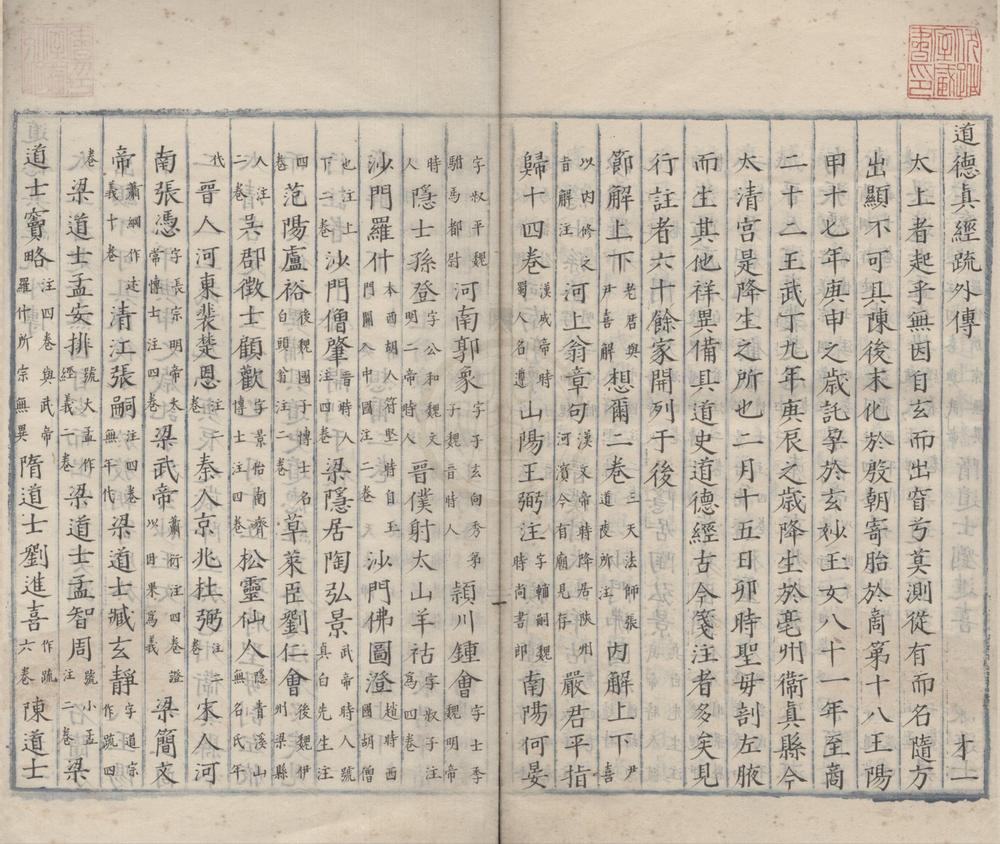 道德真經疏外傳　才一
太上者起乎無因自玄而出窅兮莫測從有而名隨方
出顯不可具陳後末化於殷朝寄胎於商第十八王陽
甲十七年庚申之歲託孕於玄妙王女八十一年至商
二十二王武丁九年庚辰之歲降生於亳州衛真縣今
太清宮是降生之所也二月十五日卯時聖毋剖左腋
而生其他祥異備具道史道德經古今箋注者多矣見
行註者六十餘家開列于後
節解上下老君與尹喜解想爾二卷三天法師張道陵所注内解上下尹喜
以内修之旨解注河上翁章句漢文帝時降居陝州河濱今有廟見存嚴君平指
歸十四卷漢成帝時蜀人名遵山陽王弼注字輔嗣魏時尚書郎南陽何晏
字叔平魏駙馬都尉河南郭象字子玄向秀弟子魏晉時人潁川鍾會字士季魏明帝
時人隱士孫登字公和魏文明二帝時人晉僕射太山羊祜字叔子注為四卷
沙門羅什本西胡人符堅時自玉門關入中國注二卷沙門佛圖澄趙時西國胡僧
也注上下二卷沙門僧肇晉時人注四卷梁隱居陶弘景武帝時人號真白先生注
四卷范陽盧裕後魏國子博士名白頭翁注二卷草萊臣劉仁會後魏伊州梁縣
人注二卷吳郡徵士顧歡字景怡南齊博士注四卷松靈仙人隱青溪山無名氏年
代晉人河東裴楚恩注二卷秦人京兆杜弼注二卷宋人河
南張憑字長宗明帝太常博士注四卷梁武帝蕭衍注四卷證以因果為義梁簡文
帝蕭綱作述義十卷清江張嗣注四卷無年代梁道士臧玄靜字道宗作疏四
卷梁道士孟安排號大孟作經義二卷梁道士孟智周號小孟注二卷梁
道士竇略注四卷與武帝羅什所宗無異隋道士劉進喜作疏六卷陳道士